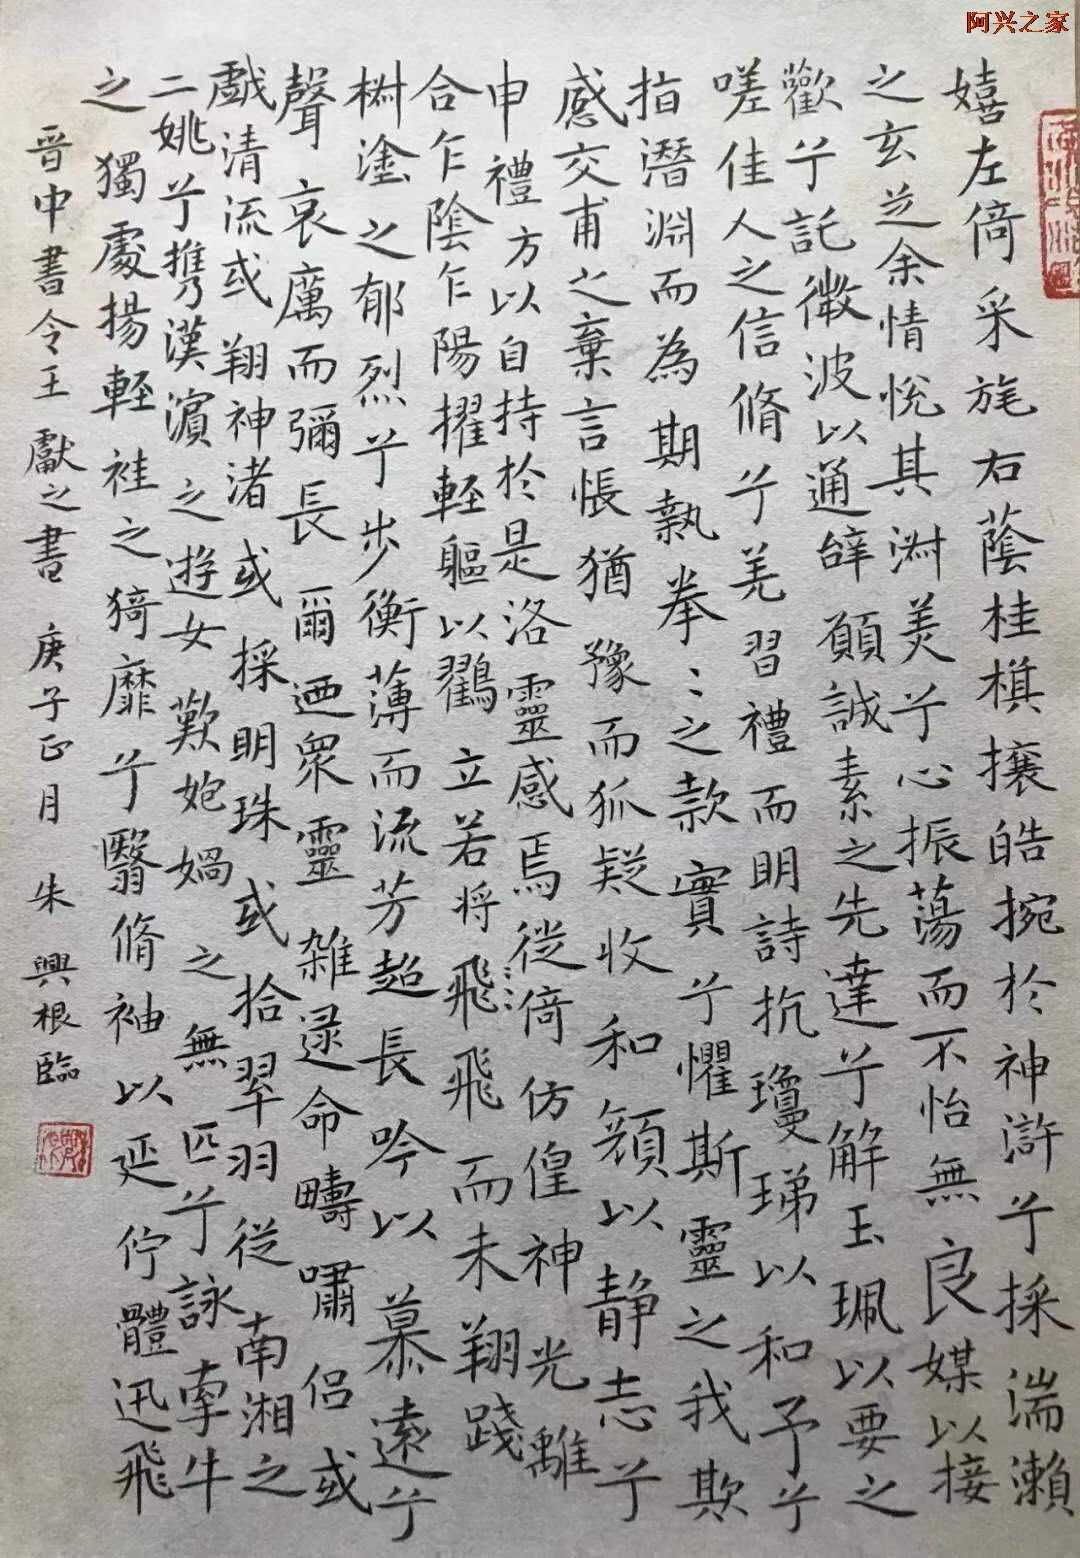 阿兴之家
嬉左倚采旄右蔭桂棋攘皓捥於神滸兮採湍瀨
之玄芝余情悅其淋美兮心振蕩而不怡無良媒以接
歡兮託微波以通辝願誠素之先達兮解玉珮以要之
嗟佳人之信脩兮羌習禮而明詩抗瓊珶以和予兮
指潛淵而為期執拳〻之款實兮懼斯靈之我欺
感交甫之棄言悵猶豫而狐疑收和顏以静志兮
申禮方以自持於是洛靈感焉徙倚仿偟神光離
合乍陰乍陽擢軽軀以鸖立若将飛飛而未翔踐
樹塗之郁烈兮步衡薄而流芳超長吟以慕遠兮
聲哀厲而彌長爾迺衆靈雑逯命疇嘯侣或
戲清流或翔神渚或採明珠或拾翠羽従南湘之
二姚兮携漢濵之遊女歎匏媧之無匹兮詠牽牛
之獨處揚軽袿之猗靡兮翳脩袖以延佇體迅飛
晋中書令王獻之書 庚子正月 朱興根臨